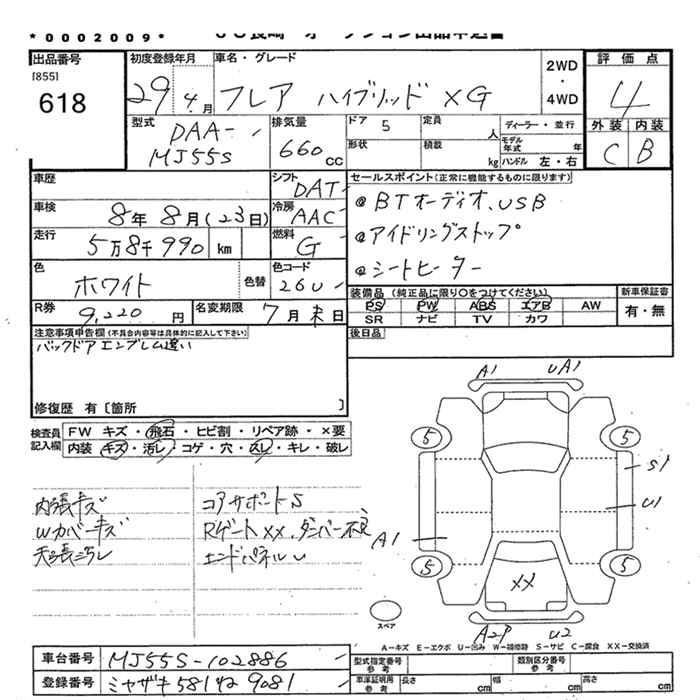 *0002009*
出品番号
[855]
618
初度登録年月
29年4月
車名・グレード
フレア ハイブリッド XG
2WD
・
4WD
評価点
4
外装 内装
C B
型式
DAA-
MJ55S
排気量
660cc
ドア 5
定員 人
形状
積載 kg
ディーラー・並行
モデル年式 年
ハンドル 左・右
車歴
シフト DAT
車検 8年8月(23日)
冷房 AAC
走行 5万8千990km
燃料 G
色 ホワイト
色替
色コード 26U
R券 9,220円
名変期限 7月末日
セールスポイント(正常に機能するものに限ります)
@BTオーディオ、USB
@アイドリングストップ
@シートヒーター
装備品(純正品に限り〇をつけてください)
PS PW ABS エアB AW
SR ナビ TV カワ
新車保証書
有・無
後日品
注意事項申告欄(不具合内容等は具体的に記入して下さい)
バックドアエンブレム違い
修復歴 有〔箇所 〕
検査員記入欄
FW キズ・飛石・ヒビ割・リペア跡・×要
内装 キズ・汚レ・コゲ・穴・スレ・キレ・破レ
内張キズ
Wカバーキズ
天張汚レ
コアサポートS
RゲートXX、ダンパー不良
エンドパネルU
A1 UA1
5 5
S1
U1
A1
5 5
XX
A2P U2
スペア
A−キズ E−エクボ U−凹み W−補修跡 S−サビ C−腐食 XX−交換済
車台番号 MJ55S-102886
登録番号 ミヤザキ581 42 9081
型式指定番号参考
類別区分番号参考
車庫証明用参考 長さ cm 幅 cm 高さ cm